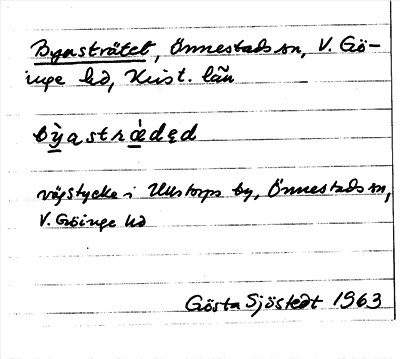 Byasträtet, Önnestads sn, V. Gö-
inge hd, Krist. län
bỳastrǽdəd
vägstycke i Ullstorps by, Önnestads sn,
V. Göinge hd
Gösta Sjöstedt 1963